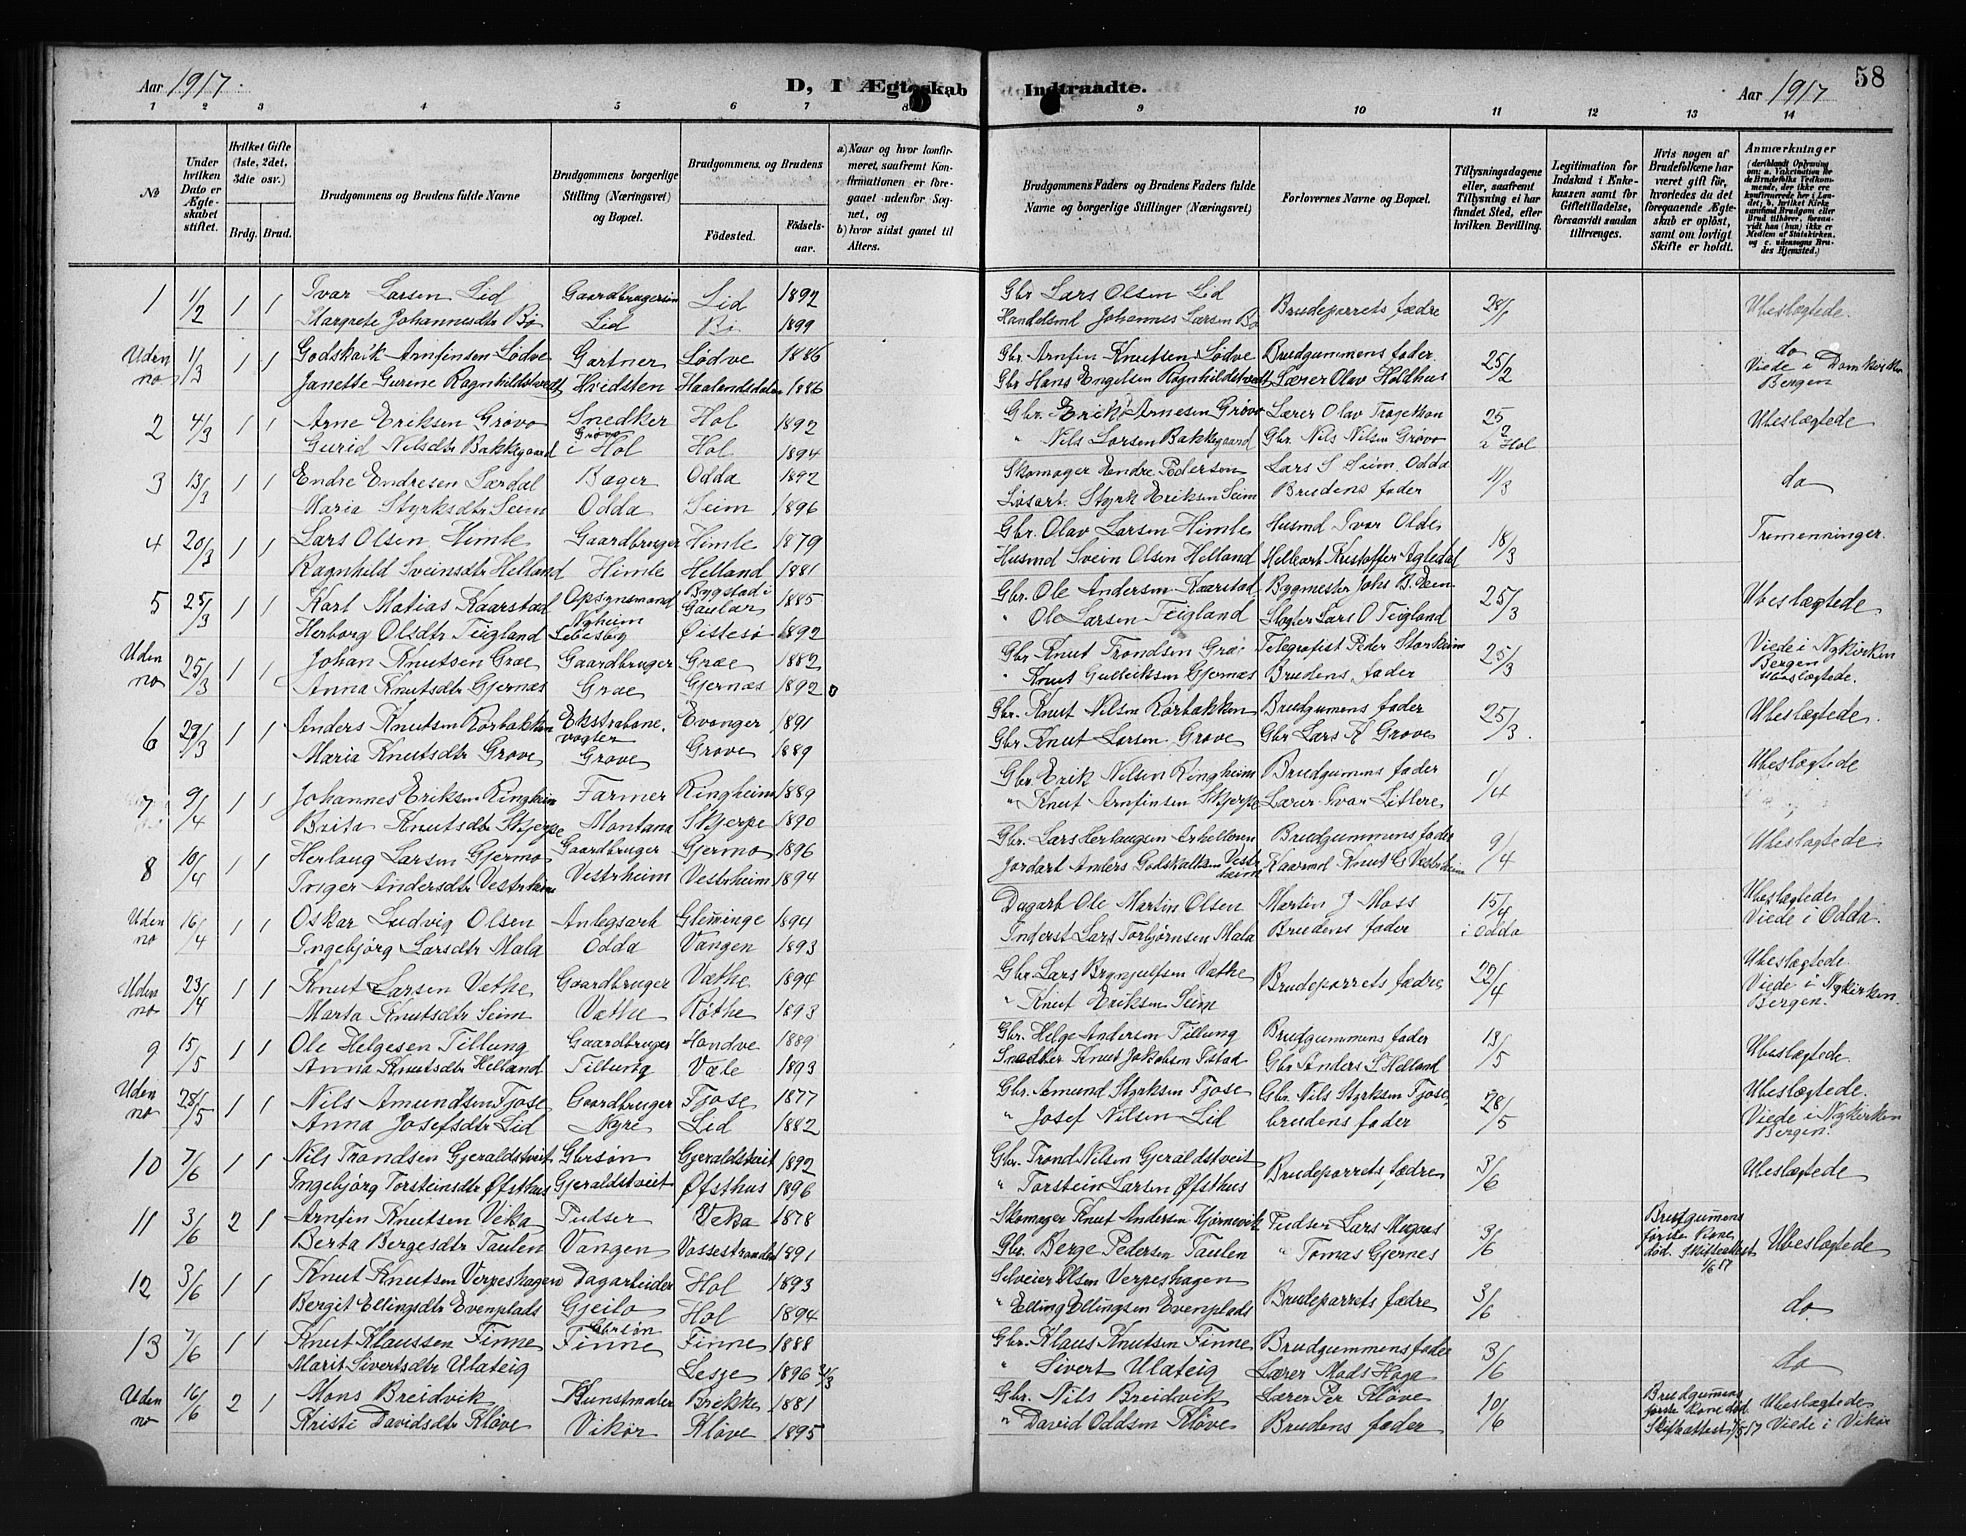 Aar 1917.
D, I Ægteskab Indtraadte.
Aar 1917
58
1 2 3 4 5 6 7 8 9 10 11 12 13 14
No
Under hvilken Dato er Ægteskabet stiftet.
Hvilket Gifte (1ste, 2det, 3die osv.)
Brdg. Brud.
Brudgommens og Brudens fulde Navne
Brudgommens borgerlige Stilling (Næringsvei) og Bopæl.
Brudgommens og Brudens
Fødested. Fødselsaar.
a) Naar og hvor konfirmeret, saafremt Konfirmationen er foregaaet udenfor Sognet, og
b) hvor sidst gaaet til Alters.
Brudgommens Faders og Brudens Faders fulde Navne og borgerlige Stillinger (Næringsvei)
Forlovernes Navne og Bopæl.
Tillysningsdagene eller, saafremt Tillysning ei har fundet Sted, efter hvilken Bevilling.
Legitimation for Indskud i Enkekassen samt for Giftetilladelse, forsaavidt saadan tiltrænges.
Hvis nogen af Brudefolkene har været gift før, hvorledes da det foregaaende Ægteskab er opløst, samt om lovligt Skifte er holdt.
Anmærkninger
1 1/2 1 1 Ivar Larsen Lid Gaardbrugersøn Lid 1892 Gbr Lars Olsen Lid Brudeparrets fædre 28/1 Ubeslægtede.
Margrete Johannesdtr Bø Lid Bø 1899 Handelsmd Johannes Larsen Bø
Uden no 1/3 1 1 Godskalk Arnfinsen Lødve Gartner Lødve 1886 Gbr Arnfin Knutsen Lødve Brudgummens fader. 25/2 do Viede i Domkirken Bergen
Janette Gurine Ragnhildstvedt Hvidsten Haalandsdalen 1886 Gbr Hans Engelsen Ragnhildstvedt Lærer Olav Holdhus
2 4/3 1 1 Arne Eriksen Grøvo Snedker Hol 1892 Gbr. Erik Arnesen Grøvo Lærer Olav Trageton 25/2 Ubeslægtede
Gurid Nilsdtr Bakkegaard Grøvo i Hol Hol 1894 " Nils Larsen Bakkegaard Gbr. Nils Nilsen Grøvo i Hol
3 13/3 1 1 Endre Endresen Særdal Bager Odda 1892 Skomager Endre Pedersen Lars S Seim, Odda 11/3 do
Maria Styrksdtr Seim Odda Seim 1896 Løsarb. Styrk Eriksen Seim Brudens fader
4 20/3 1 1 Lars Olsen Himle Gaardbruger Himle 1879 Gbr. Olav Larsen Himle Husmd Ivar Olde 18/3 Tremenninger.
Ragnhild Sveinsdtr Helland Himle Helland 1881 Husmd Svein Olsen Helland Kristoffer Agledal
5 25/3 1 1 Karl Matias Kaarstad Opsynsmand Bygstad i Gaular 1885 Gbr. Ole Andersen Kaarstad Bygmester Johs B. Seim 25/3 Ubeslægtede
Herborg Olsdtr Teigland Øistesø 1892 " Ole Larsen Teigland Slagter Lars O Teigland
Uden no 25/3 1 1 Johan Knutsen Græ Gaardbruger Græ 1882 Gbr Knut Trondsen Græ Telegrafist Peder Storheim 25/3 Viede i Nykirken Bergen Ubeslægtede.
Anna Knutsdtr Gjernæs Græ Gjernæs 1892 " Knut Gulleiksen Gjernæs Brudens fader
6 29/3 1 1 Anders Knutsen Rørbakken Ekstrabanevogter Evanger 1891 Gbr. Knut Nilsen Rørbakken Brudgumens fader 25/3. Ubeslægtede.
Maria Knutsdtr Grove Grove Grove 1889 Gbr Knut Larsen Grove Gbr Lars K Grove
7 9/4 1 1 Johannes Eriksen Ringheim Farmer Ringheim 1889 Gbr Erik Nilsen Ringheim Brudgumens fader 1/4 Ubeslægtede
Brita Knutsdtr Skjerpe Montana Skjerpe 1890 " Knut Arnfinsen Skjerpe Lærer Ivar Litlere
8 10/4 1 1 Herlaug Larsen Gjermo Gaardbruger Gjermo 1896 Gbr. Lars Herlaugsen Brudgummens fader 9/4 Ubeslægtede
Inger Andersdtr Vestrheim Vestrheim Vestrheim 1894 Jordarb Anders Godskalksen Vestrheim Kaarmd Knut G Vestrheim
Uden no 16/4 1 1 Oskar Ludvig Olsen Anlegsarb Glemminge 1894 Dagarb Ole Martin Olsen Martin J Moss 15/4 Ubeslægtede Viede i Odda.
Ingebjørg Larsdtr Mala Odda Vangen 1893 Inderst Lars Torbjørnsen Mala Brudens fader i Odda
Uden no 23/4 1 1 Knut Larsen Væthe Gaardbruger Væthe 1894 Gbr. Lars Brynjulfsen Væthe Brudeparrets fædre 22/4 Ubeslægtede. Viede i Nykirken Bergen.
Marta Knutsdtr Seim Væthe Røthe 1893 " Knut Eriksen Seim
9 15/5 1 1 Ole Helgesen Tillung Gaardbruger Hondve 1889 Gbr. Helge Andersen Tillung Brudgummens fader 13/5 Ubeslægtede.
Anna Knutsdtr Helland Tillung Væle 1893 Snedker Knut Jakobsen Istad Gbr Anders L Helland
Uden no 28/5 1 1 Nils Amundsen Fjose Gaardbruger Fjose 1877 Gbr. Amund Styrksen Fjose Gbr. Nils Styrksen Fjose, 28/5 Ubeslægtede. Viede i Nykirken Bergen.
Anna Josefsdtr Lid Nyre Lid 1882 " Josef Nilsen Lid brudens fader
10 7/6 1 1 Nils Trondsen Gjeraldstveit Gbrsøn Gjeraldstveit 1892 Gbr. Trond Nilsen Gjeraldstveit Brudeparrets fædre 3/6 Ubeslægtede
Ingebjørg Torsteinsdtr Øfsthus Gjeraldstveit Øfsthus 1896 " Torstein Larsen Øfsthus
11 3/6 2 1 Arnfin Knutsen Veka Pudser Veka 1878 Skomager Knut Andersen Hjørnevik Pudser Lars Mugaas 3/6 Brudgumens første kone død. Skifteattest 1/6 17 Ubeslægtede
Berta Bergesdtr Taulen Vangen Vossestranden 1891 Gbr. Berge Pedersen Taulen " Tomas Gjernes
12 3/6 1 1 Knut Knutsen Verpeshagen Dagarbeider Hol 1893 Selveier Olsen Verpeshagen Brudeparrets fædre 3/6 do
Bergit Ellingsdtr Evenplads Gjeilo Hol 1894 " Elling Ellingsen Evenplads
13 7/6 1 1 Knut Klaussen Finne Gbrsøn Finne Finne 1888 Gbr. Klaus Knutsen Finne Brudgummens fader 3/6 do
Marit Sivertsdtr Ulateig Lesje 1896 " Sivert Ulateig Lærer Mads Haga
Uden no 16/6 2 1 Mons Breidvik Kunstmaler Brekke 1881 Gbr. Nils Breidvik Lærer Per Kløve 10/6 Brudgumens første kone død. Skifteattest 1/5 17 Ubeslægtede Viede i Vikør
Kristi Davidsdtr Kløve Vikør Kløve 1895 " David Oddsen Kløve Brudens fader